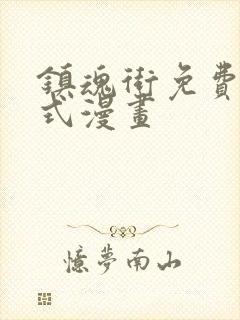 鎮魂街免費
式漫畫
憶夢南山